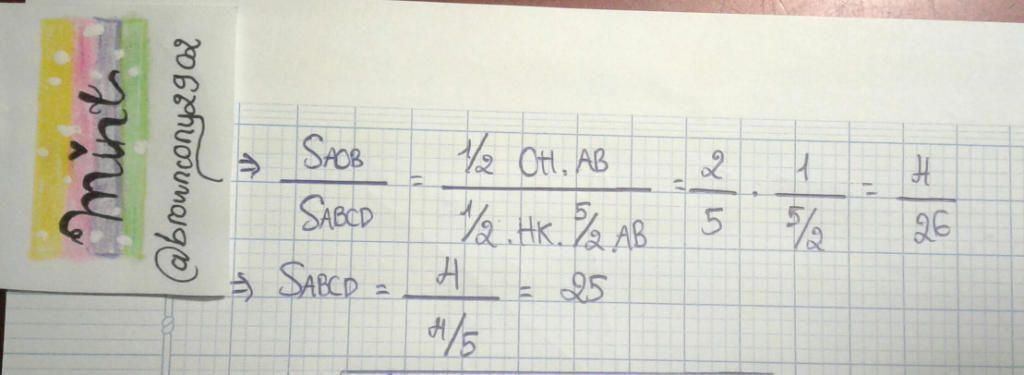 Mint
@browncony2902
⇒ SAOB / SABCD = 1/2 OH.AB / 1/2.HK.5/2.AB = 2/5 . 1 / 5/2 = 4/26
⇒ SABCD = 4 / 4/5 = 25